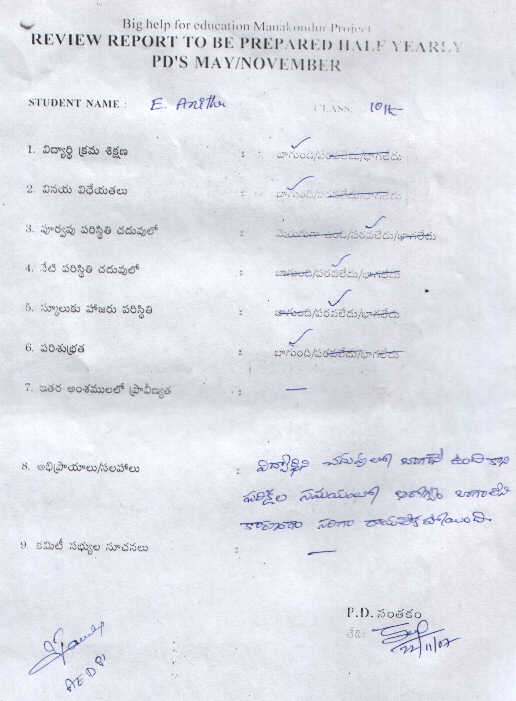 Big help for education Manakondur Project
REVIEW REPORT TO BE PREPARED HALF YEARLY
PD'S MAY/NOVEMBER
STUDENT NAME : E. Anitha CLASS: 10th
1. విద్యార్థి క్రమ శిక్షణ : బాగుంది/పరవలేదు/బాగలేదు
2. వినయ విధేయతలు : బాగుంది/పరవలేదు/బాగలేదు
3. పూర్వపు పరిస్థితి చదువులో : మెరుగుగా ఉంది/పరవలేదు/బాగలేదు
4. నేటి పరిస్థితి చదువులో : బాగుంది/పరవలేదు/బాగలేదు
5. స్కూలుకు హాజరు పరిస్థితి : బాగుంది/పరవలేదు/బాగలేదు
6. పరిశుభ్రత : బాగుంది/పరవలేదు/బాగలేదు
7. ఇతర అంశములలో ప్రావీణ్యత : —
8. అభిప్రాయాలు/సలహాలు : విద్యార్థిని చదువులో బాగానే ఉంది కాని
పరీక్షల సమయంలో ఆరోగ్యం బాగాలేని
కారణంగా సరిగా రాయలేక పోయింది.
9. కమిటీ సభ్యుల సూచనలు : —
P.D. సంతకం
తేది:
22/11/07